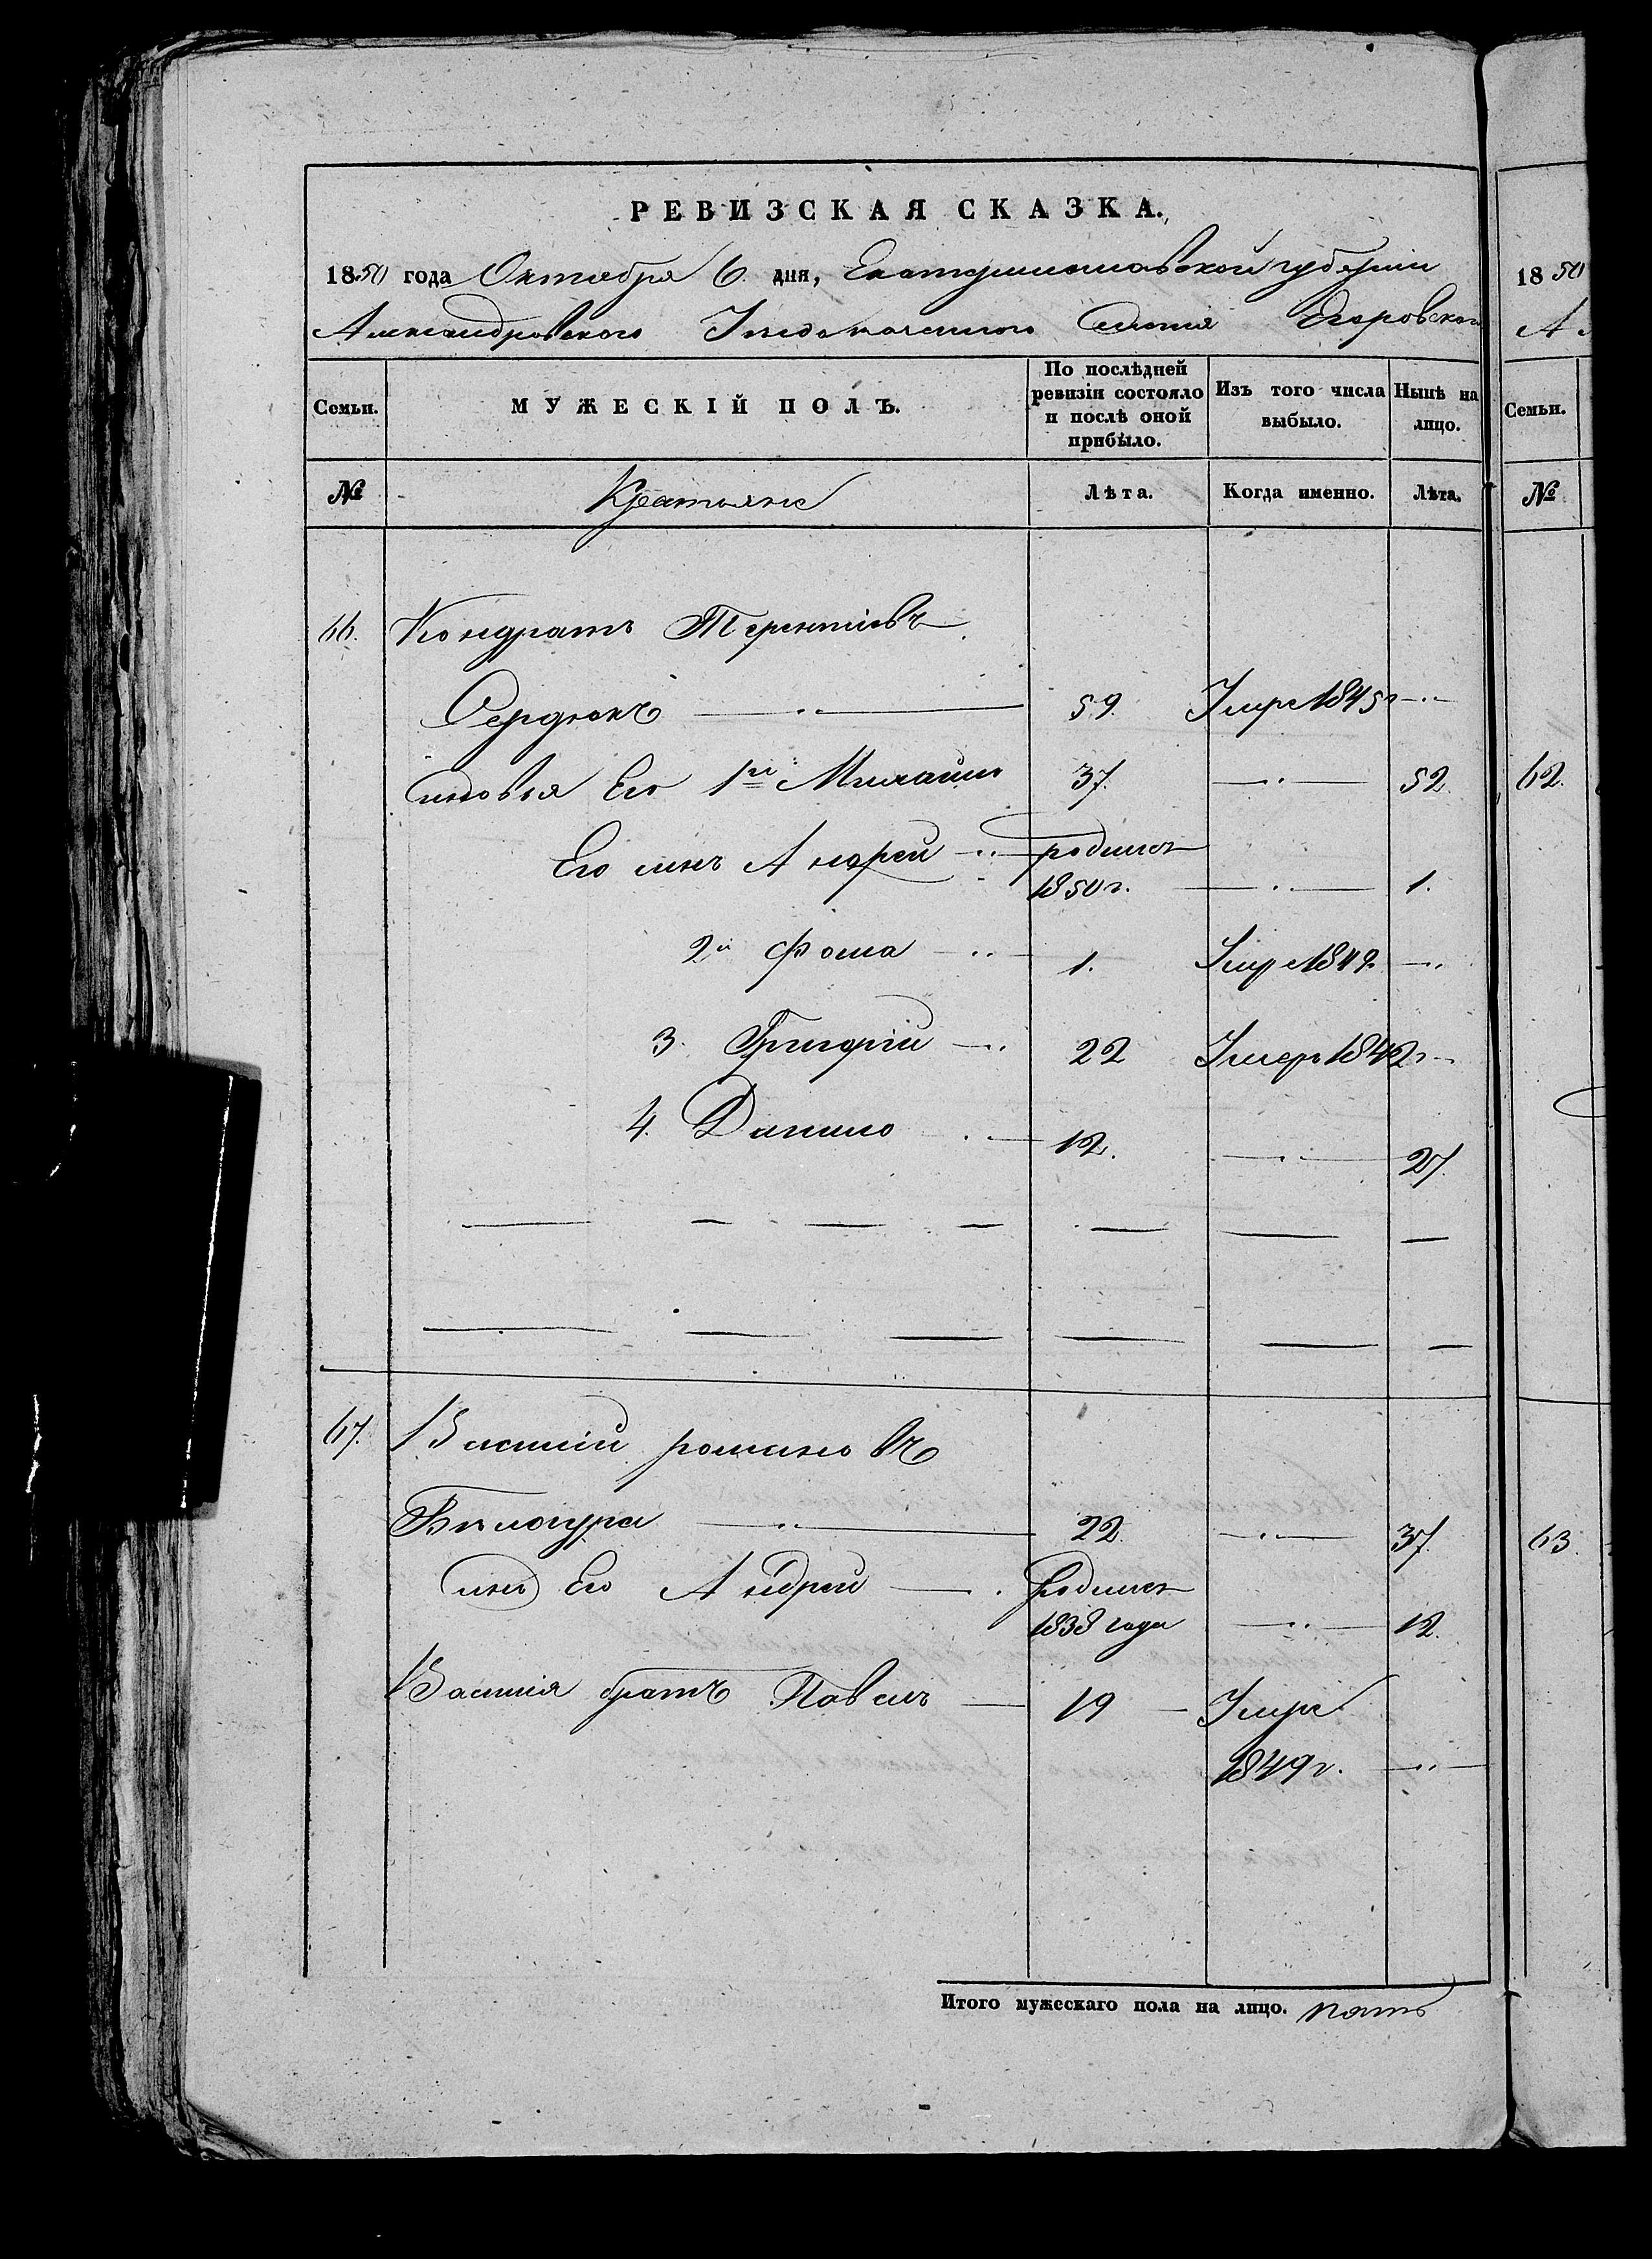 РЕВИЗСКАЯ СКАЗКА.
1850 года Октября 6 дня, Екатеринославской губернии
Александровского Уезда казенного Селения Егоровского
Семьи. МУЖЕСКІЙ ПОЛЪ. По послѣдней ревизіи состояло и послѣ оной прибыло. Изъ того числа выбыло. Нынѣ на лицо.
№ Крестьяне Лѣта. Когда именно. Лѣта.
66. Кондратъ Терентіевъ
Сердюкъ 59. Умре 1845г
сыновья Его 1й Михайло 37. 52
Его сынъ Андрей родился 1850г. 1.
2й Фома 1. Умре 1849
3. Григорій 22 Умеръ 1842г
4. Данило 12. 27.
67. Василій романовъ
Билогура 22. 37.
сынъ Его Андрей Родился 1838 года 12.
Василія братъ Павелъ 19 Умре 1849г.
Итого мужескаго пола на лицо. пять
18 50
А
Семьи.
№
62.
63.